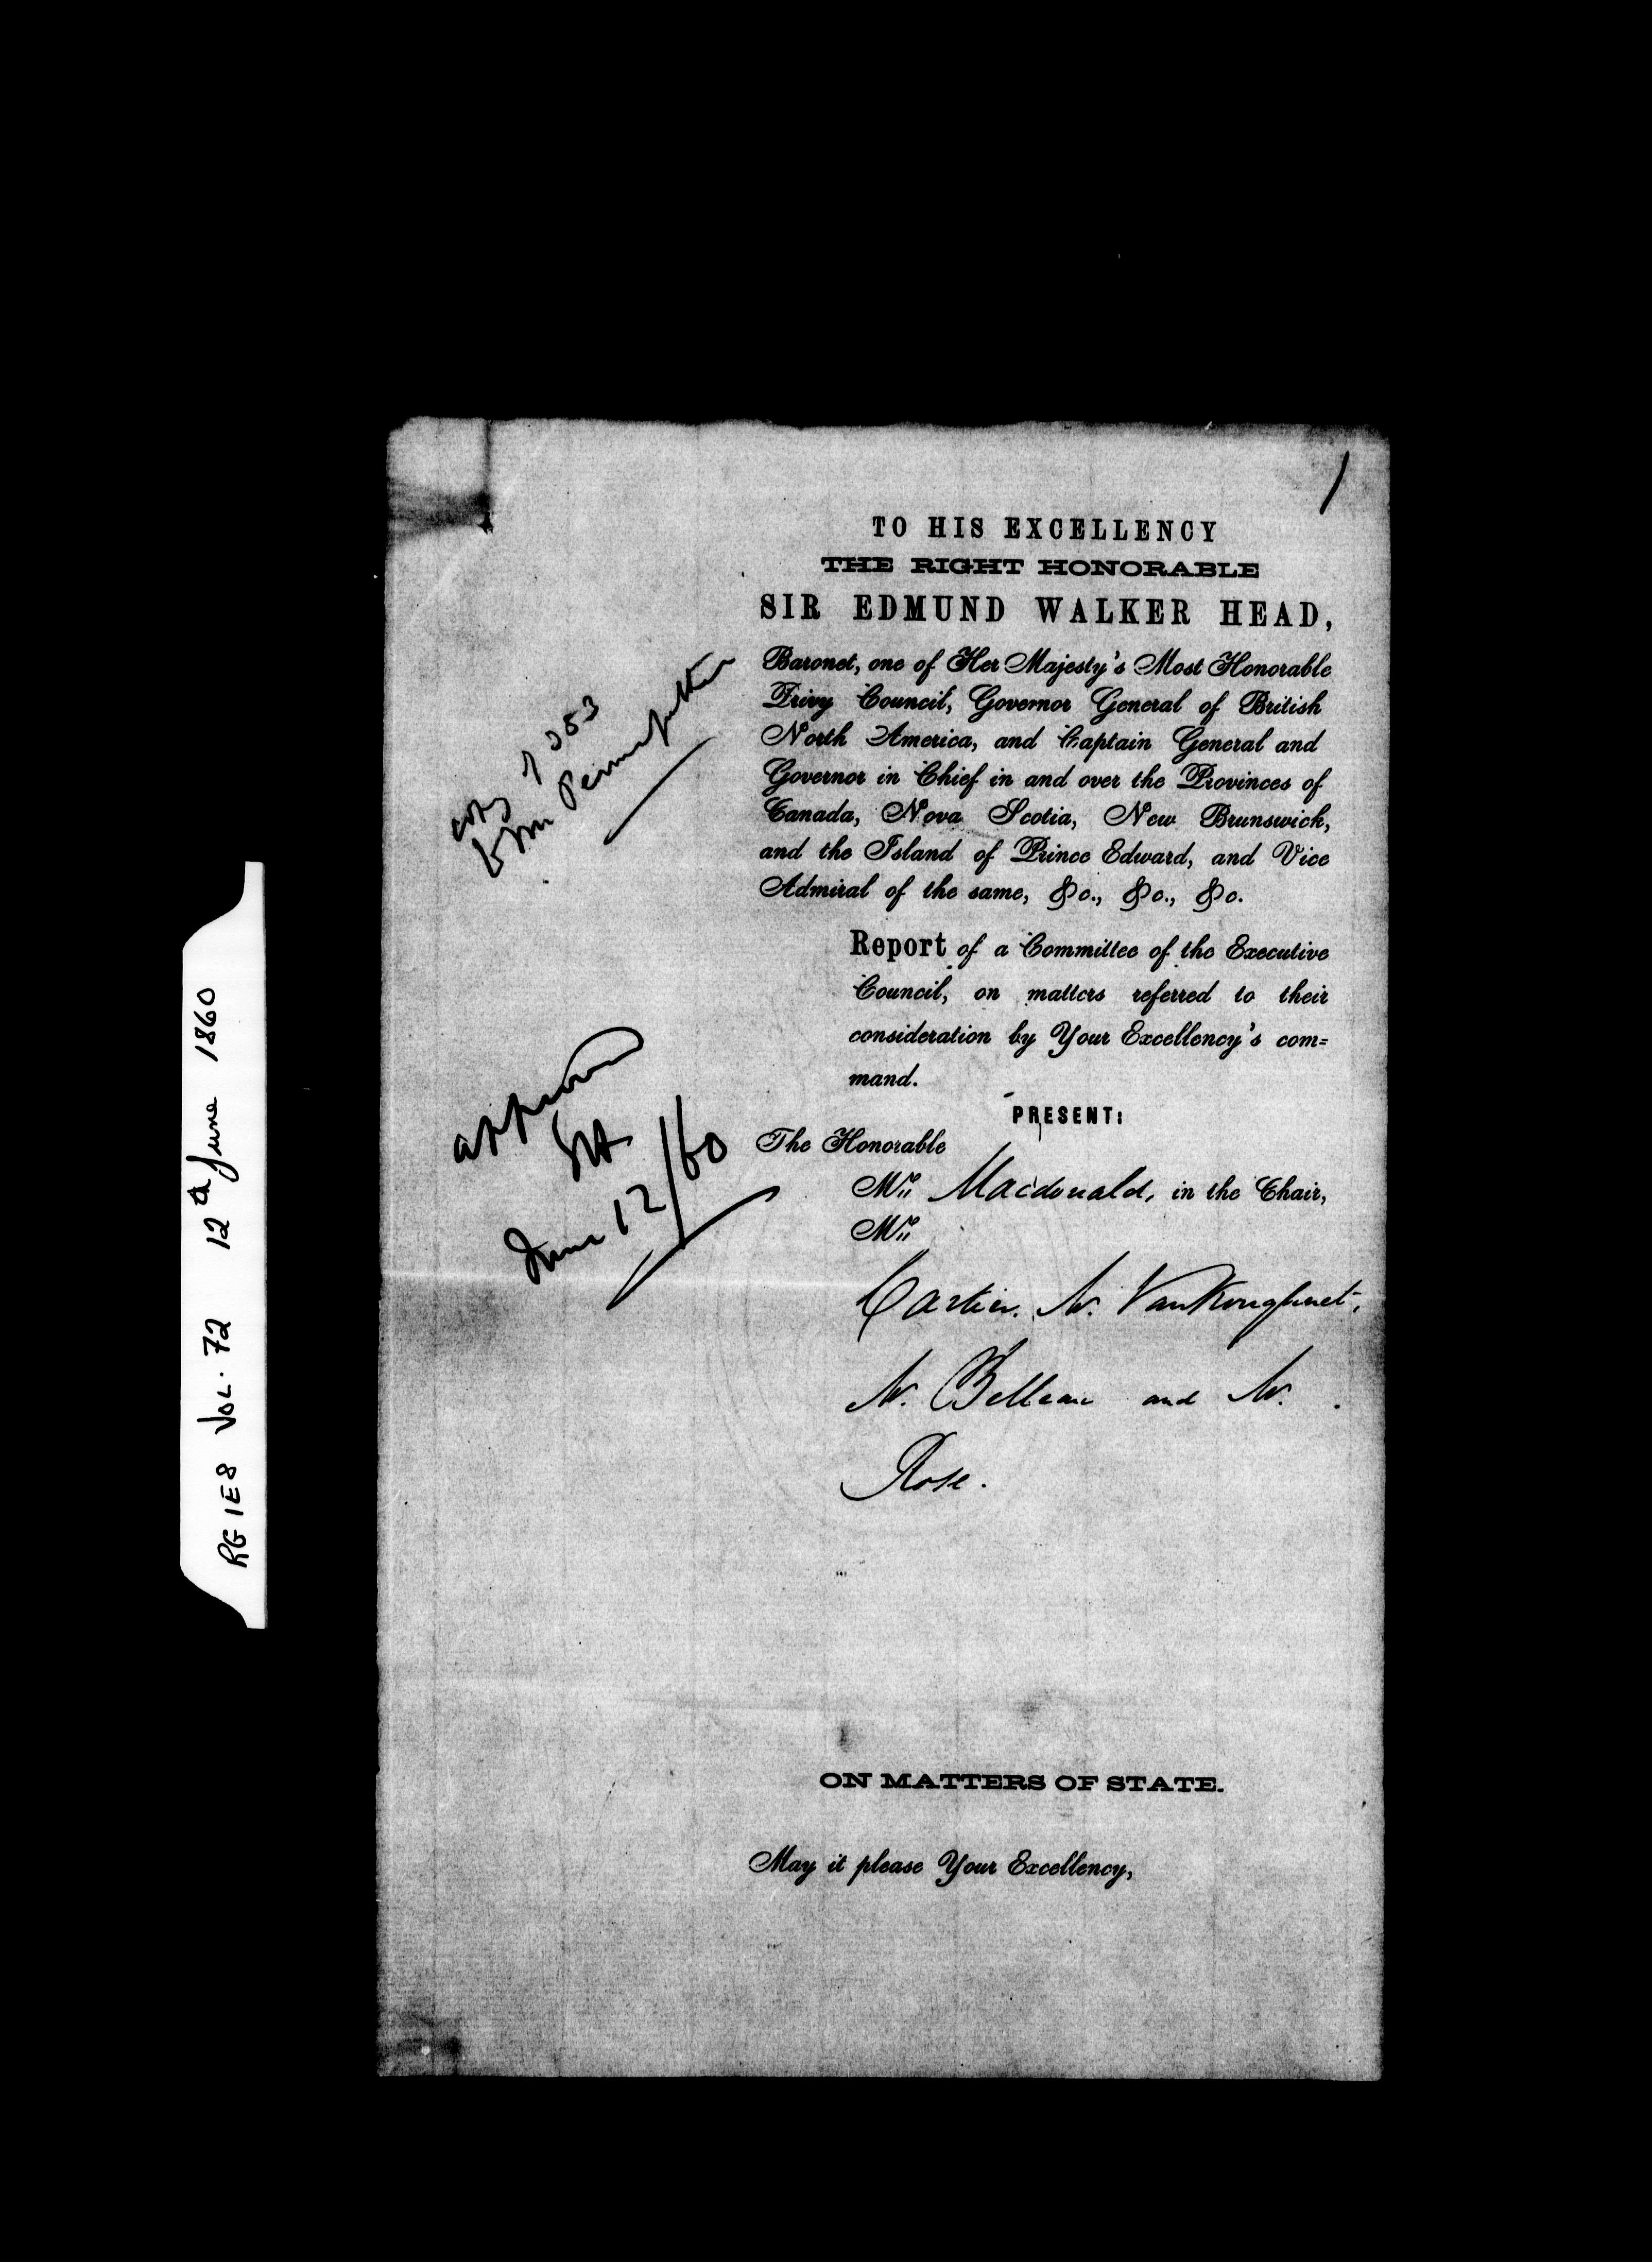 RG 1E8 VOL. 72 12th June 1860
1
TO HIS EXCELLENCY
THE RIGHT HONORABLE
SIR EDMUND WALKER HEAD,
Baronet, one of Her Majesty's Most Honorable
Privy Council, Governor General of British
North America, and Captain General and
Governor in Chief in and over the Provinces of
Canada, Nova Scotia, New Brunswick,
and the Island of Prince Edward, and Vice
Admiral of the same, &c., &c., &c.
Report of a Committee of the Executive
Council, on matters referred to their
consideration by Your Excellency's com=
mand.
PRESENT:
The Honorable
Mr. Macdonald, in the Chair,
Mr.
Cartier. Mr. VanKoughnet,
Mr. Belleau and Mr.
Rose.
approved
June 12/60
ON MATTERS OF STATE.
May it please Your Excellency,